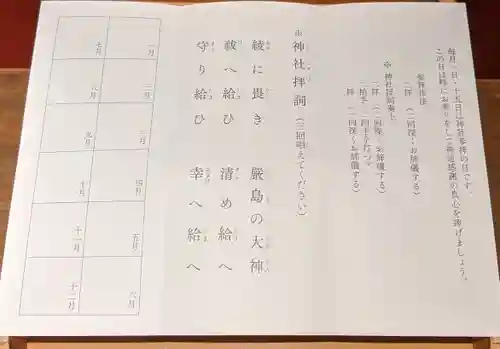 毎月一日・十五日は神社参拝の日です。
この日は特にお参りをして神恩感謝の真心を捧げましょう。
参拝作法
二拝（二回深くお辞儀する）
※神社拝詞奏上
二拝（二回深くお辞儀する）
二拍手
一拝（一回深くお辞儀する）
※神社拝詞（三回唱えてください）
綾に畏き　厳島の大神
祓へ給ひ　清め給へ
守り給ひ　幸へ給へ
一月
二月
三月
四月
五月
六月
七月
八月
九月
十月
十一月
十二月